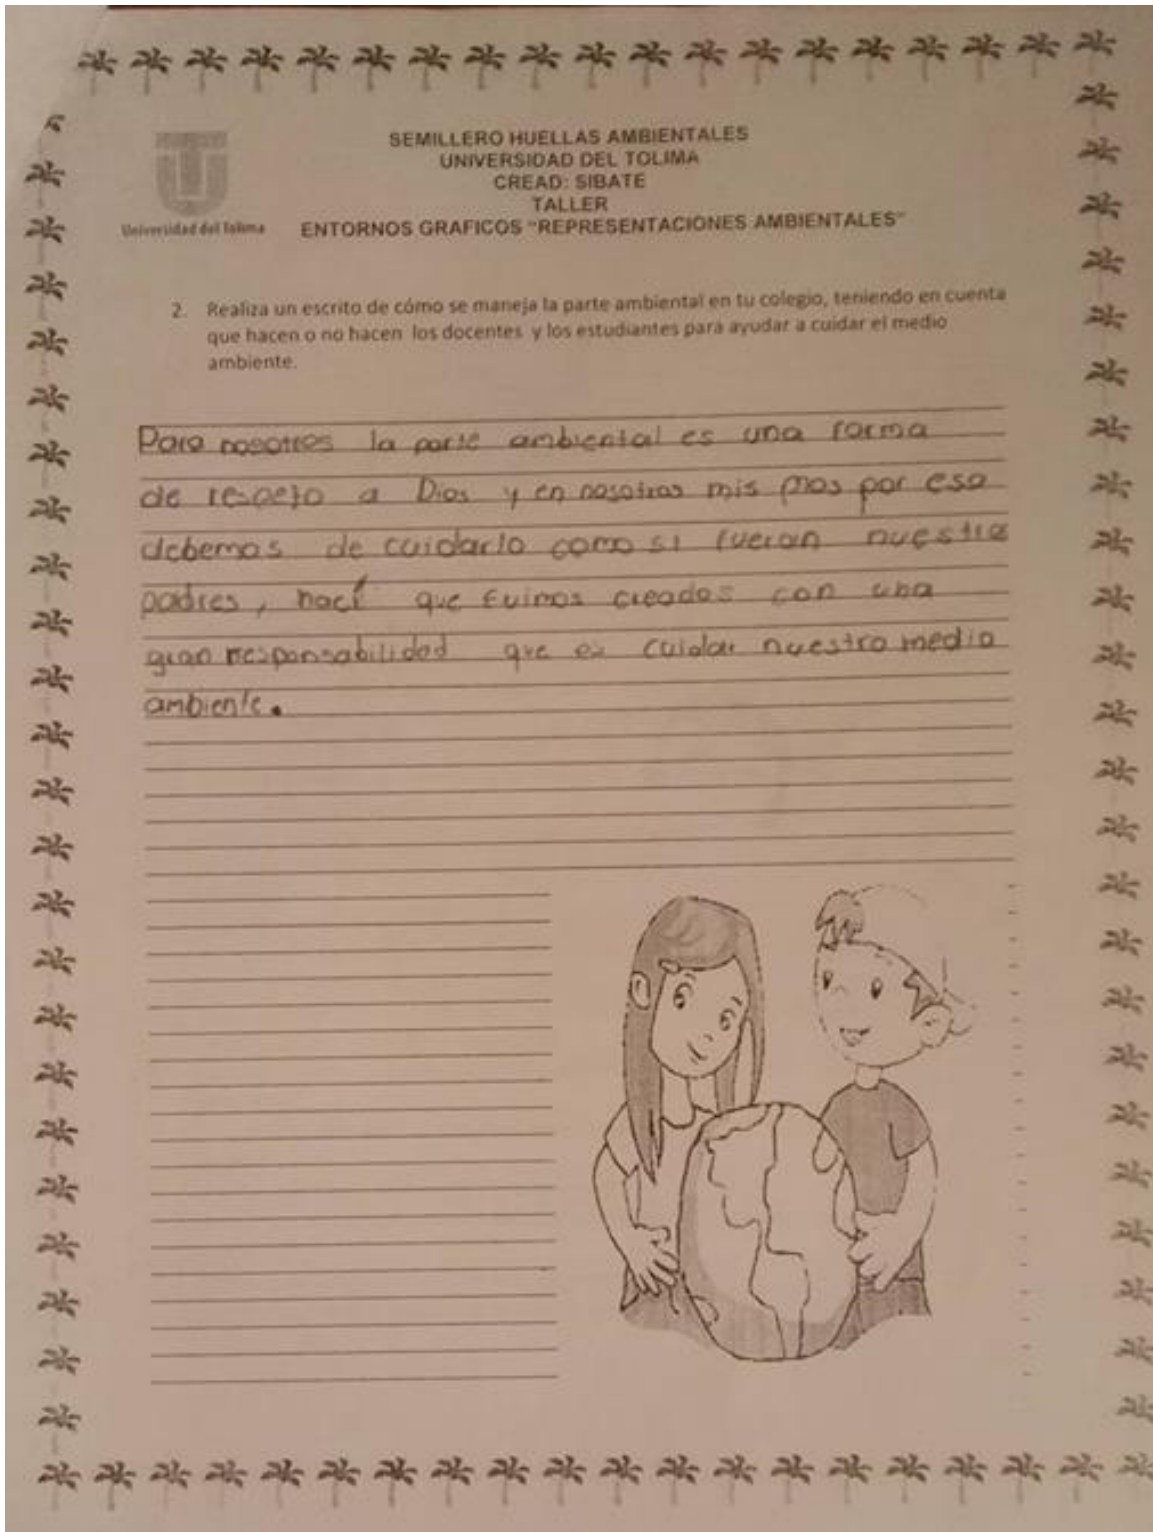 SEMILLERO HUELLAS AMBIENTALES
UNIVERSIDAD DEL TOLIMA
CREAD: SIBATE
TALLER
Universidad del Tolima
ENTORNOS GRAFICOS "REPRESENTACIONES AMBIENTALES"
2. Realiza un escrito de cómo se maneja la parte ambiental en tu colegio, teniendo en cuenta
que hacen o no hacen los docentes y los estudiantes para ayudar a cuidar el medio
ambiente.
Para nosotros la parte ambiental es una forma
de respeto a Dios y en nosotros mis mos por eso
debemos de cuidarlo como si fueran nuestros
padres, hací que fuimos creados con una
gran responsabilidad que es cuidar nuestro medio
ambiente.